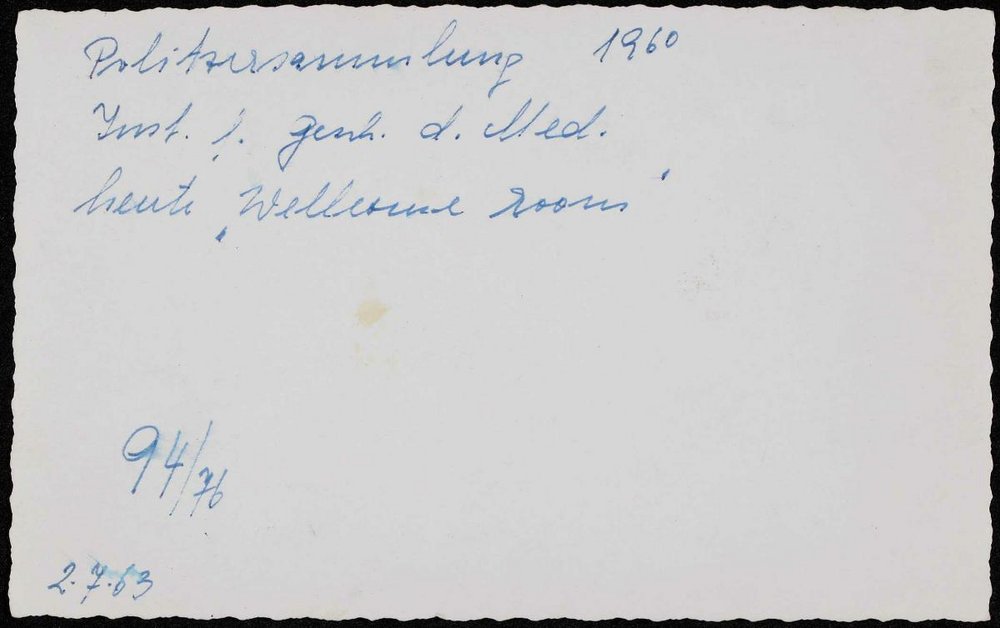 Politzersammlung 1960
Inst. f. Gesch. d. Med.
heute „Wellcome Room"
94/76
2.7.63